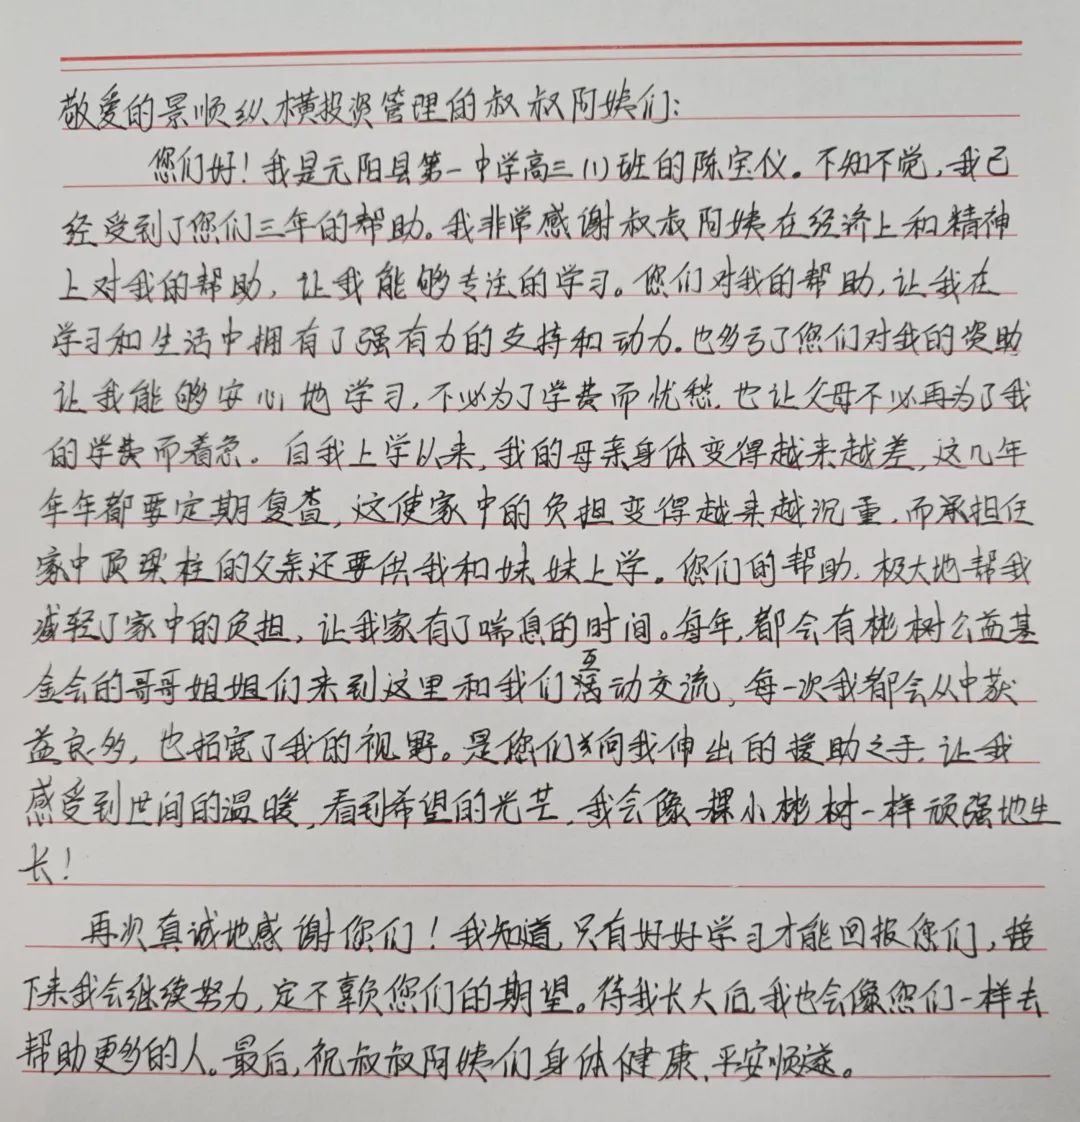 敬爱的景顺纵横投资管理的叔叔阿姨们：
您们好！我是元阳县第一中学高三(1)班的陈宝仪。不知不觉，我已
经受到了您们三年的帮助。我非常感谢叔叔阿姨在经济上和精神
上对我的帮助，让我能够专注的学习。您们对我的帮助，让我在
学习和生活中拥有了强有力的支持和动力。也多亏了您们对我的资助
让我能够安心地学习，不必为了学费而忧愁，也让父母不必再为了我
的学费而着急。自我上学以来，我的母亲身体变得越来越差，这几年
年年都要定期复查，这使家中的负担变得越来越沉重，而承担任
家中顶梁柱的父亲还要供我和妹妹上学。您们的帮助，极大地帮我
减轻了家中的负担，让我家有了喘息的时间。每年，都会有彬树公益基
金会的哥哥姐姐们来到这里和我们互动交流，每一次我都会从中获
益良多，也拓宽了我的视野。是您们向我伸出的援助之手，让我
感受到世间的温暖，看到希望的光芒，我会像一棵小彬树一样顽强地生
长！
再次真诚地感谢您们！我知道，只有好好学习才能回报您们，接
下来我会继续努力，定不辜负您们的期望。待我长大后，我也会像您们一样去
帮助更多的人。最后，祝叔叔阿姨们身体健康，平安顺遂。